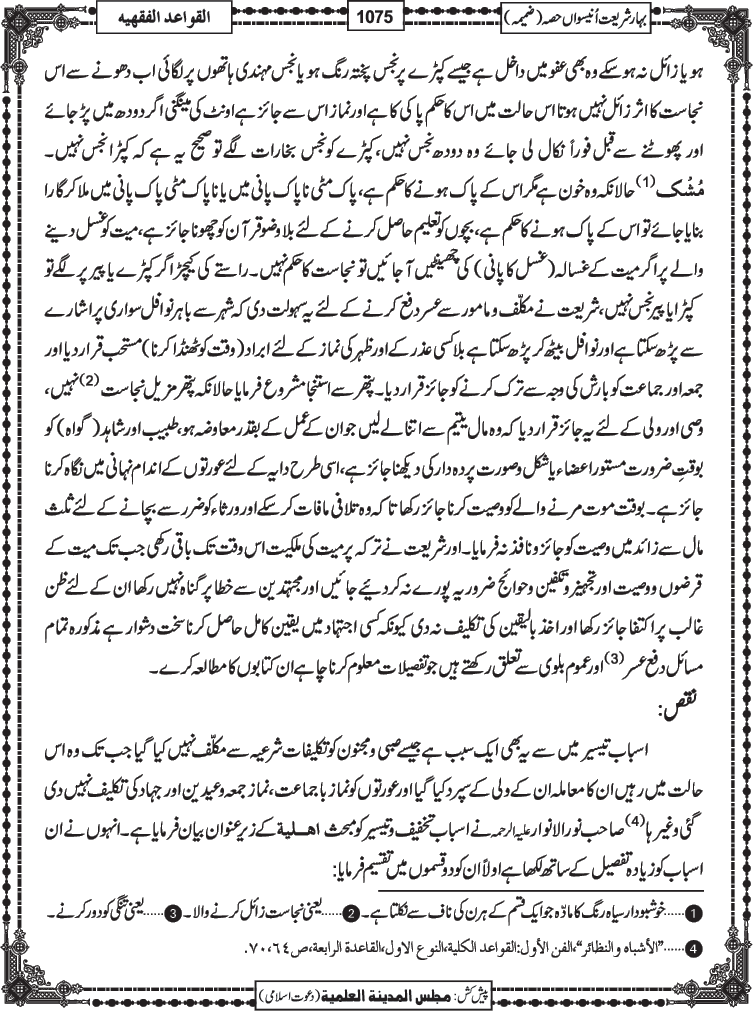 بہارِ شریعت اُنیسواں حصہ (ضمیمہ)
1075
القواعد الفقهیه
ہو یا زائل نہ ہو سکے وہ بھی عفو میں داخل ہے جیسے کپڑے پر نجس پختہ رنگ ہو یا نجس مہندی ہاتھوں پر لگائی اب دھونے سے اس
نجاست کا اثر زائل نہیں ہوتا اس حالت میں اس کا حکم پاکی کا ہے اور نماز اس سے جائز ہے اونٹ کی مینگنی اگر دودھ میں پڑ جائے
اور پھوٹنے سے قبل فوراً نکال لی جائے وہ دودھ نجس نہیں، کپڑے کو نجس بخارات لگے تو صحیح یہ ہے کہ کپڑا نجس نہیں۔
مُشک(1) حالانکہ وہ خون ہے مگر اس کے پاک ہونے کا حکم ہے، پاک مٹی ناپاک پانی میں یا ناپاک مٹی پاک پانی میں ملا کر گارا
بنایا جائے تو اس کے پاک ہونے کا حکم ہے، بچوں کو تعلیم حاصل کرنے کے لئے بلا وضو قرآن کو چھونا جائز ہے، میت کو غسل دینے
والے پر اگر میت کے غسالہ (غسل کا پانی) کی چھینٹیں آجائیں تو نجاست کا حکم نہیں۔ راستے کی کیچڑ اگر کپڑے یا پیر پر لگے تو
کپڑا یا پیر نجس نہیں، شریعت نے مکلّف و مامور سے عسر دفع کرنے کے لئے یہ سہولت دی کہ شہر سے باہر نوافل سواری پر اشارے
سے پڑھ سکتا ہے اور نوافل بیٹھ کر پڑھ سکتا ہے بلا کسی عذر کے اور ظہر کی نماز کے لئے ابراد (وقت کو ٹھنڈا کرنا) مستحب قرار دیا اور
جمعہ اور جماعت کو بارش کی وجہ سے ترک کرنے کو جائز قرار دیا۔ پتھر سے استنجا مشروع فرمایا حالانکہ پتھر مزیل نجاست(2) نہیں،
وصی اور ولی کے لئے یہ جائز قرار دیا کہ وہ مال یتیم سے اتنا لے لیں جو ان کے عمل کے بقدر معاوضہ ہو، طبیب اور شاہد (گواہ) کو
بوقتِ ضرورت مستور اعضاء یا شکل و صورت پردہ دار کی دیکھنا جائز ہے، اسی طرح دایہ کے لئے عورتوں کے اندام نہانی میں نگاہ کرنا
جائز ہے۔ بوقت موت مرنے والے کو وصیت کرنا جائز رکھا تاکہ وہ تلافی مافات کر سکے اور ورثاء کو ضرر سے بچانے کے لئے ثلث
مال سے زائد میں وصیت کو جائز و نافذ نہ فرمایا۔ اور شریعت نے ترکہ پر میت کی ملکیت اس وقت تک باقی رکھی جب تک میت کے
قرضوں و وصیت اور تجہیز و تکفین و حوائج ضروریہ پورے نہ کر دیئے جائیں اور مجتہدین سے خطا پر گناہ نہیں رکھا ان کے لئے ظن
غالب پر اکتفا جائز رکھا اور اخذ بالیقین کی تکلیف نہ دی کیونکہ کسی اجتہاد میں یقین کامل حاصل کرنا سخت دشوار ہے مذکورہ تمام
مسائل دفع عسر(3) اور عموم بلوی سے تعلق رکھتے ہیں جو تفصیلات معلوم کرنا چاہے ان کتابوں کا مطالعہ کرے۔
نقص:
اسباب تیسیر میں سے یہ بھی ایک سبب ہے جیسے صبی و مجنون کو تکلیفات شرعیہ سے مکلّف نہیں کیا گیا جب تک وہ اس
حالت میں رہیں ان کا معاملہ ان کے ولی کے سپرد کیا گیا اور عورتوں کو نماز با جماعت، نماز جمعہ و عیدین اور جہاد کی تکلیف نہیں دی
گئی وغیرہا(4) صاحب نور الانوار علیہ الرحمہ نے اسباب تخفیف و تیسیر کو مبحث اہلیة کے زیر عنوان بیان فرمایا ہے۔ انہوں نے ان
اسباب کو زیادہ تفصیل کے ساتھ لکھا ہے اولاً ان کو دو قسموں میں تقسیم فرمایا:
1......خوشبودار سیاہ رنگ کا مادّہ جو ایک قسم کے ہرن کی ناف سے نکلتا ہے۔ 2......یعنی نجاست زائل کرنے والا۔ 3......یعنی تنگی کو دور کرنے۔
4......"الأشباه والنظائر"، الفن الأول: القواعد الكلية، النوع الاول، القاعدة الرابعة، ص٦٤، ٧٠.
پیش کش: مجلس المدینة العلمیة (دعوت اسلامی)